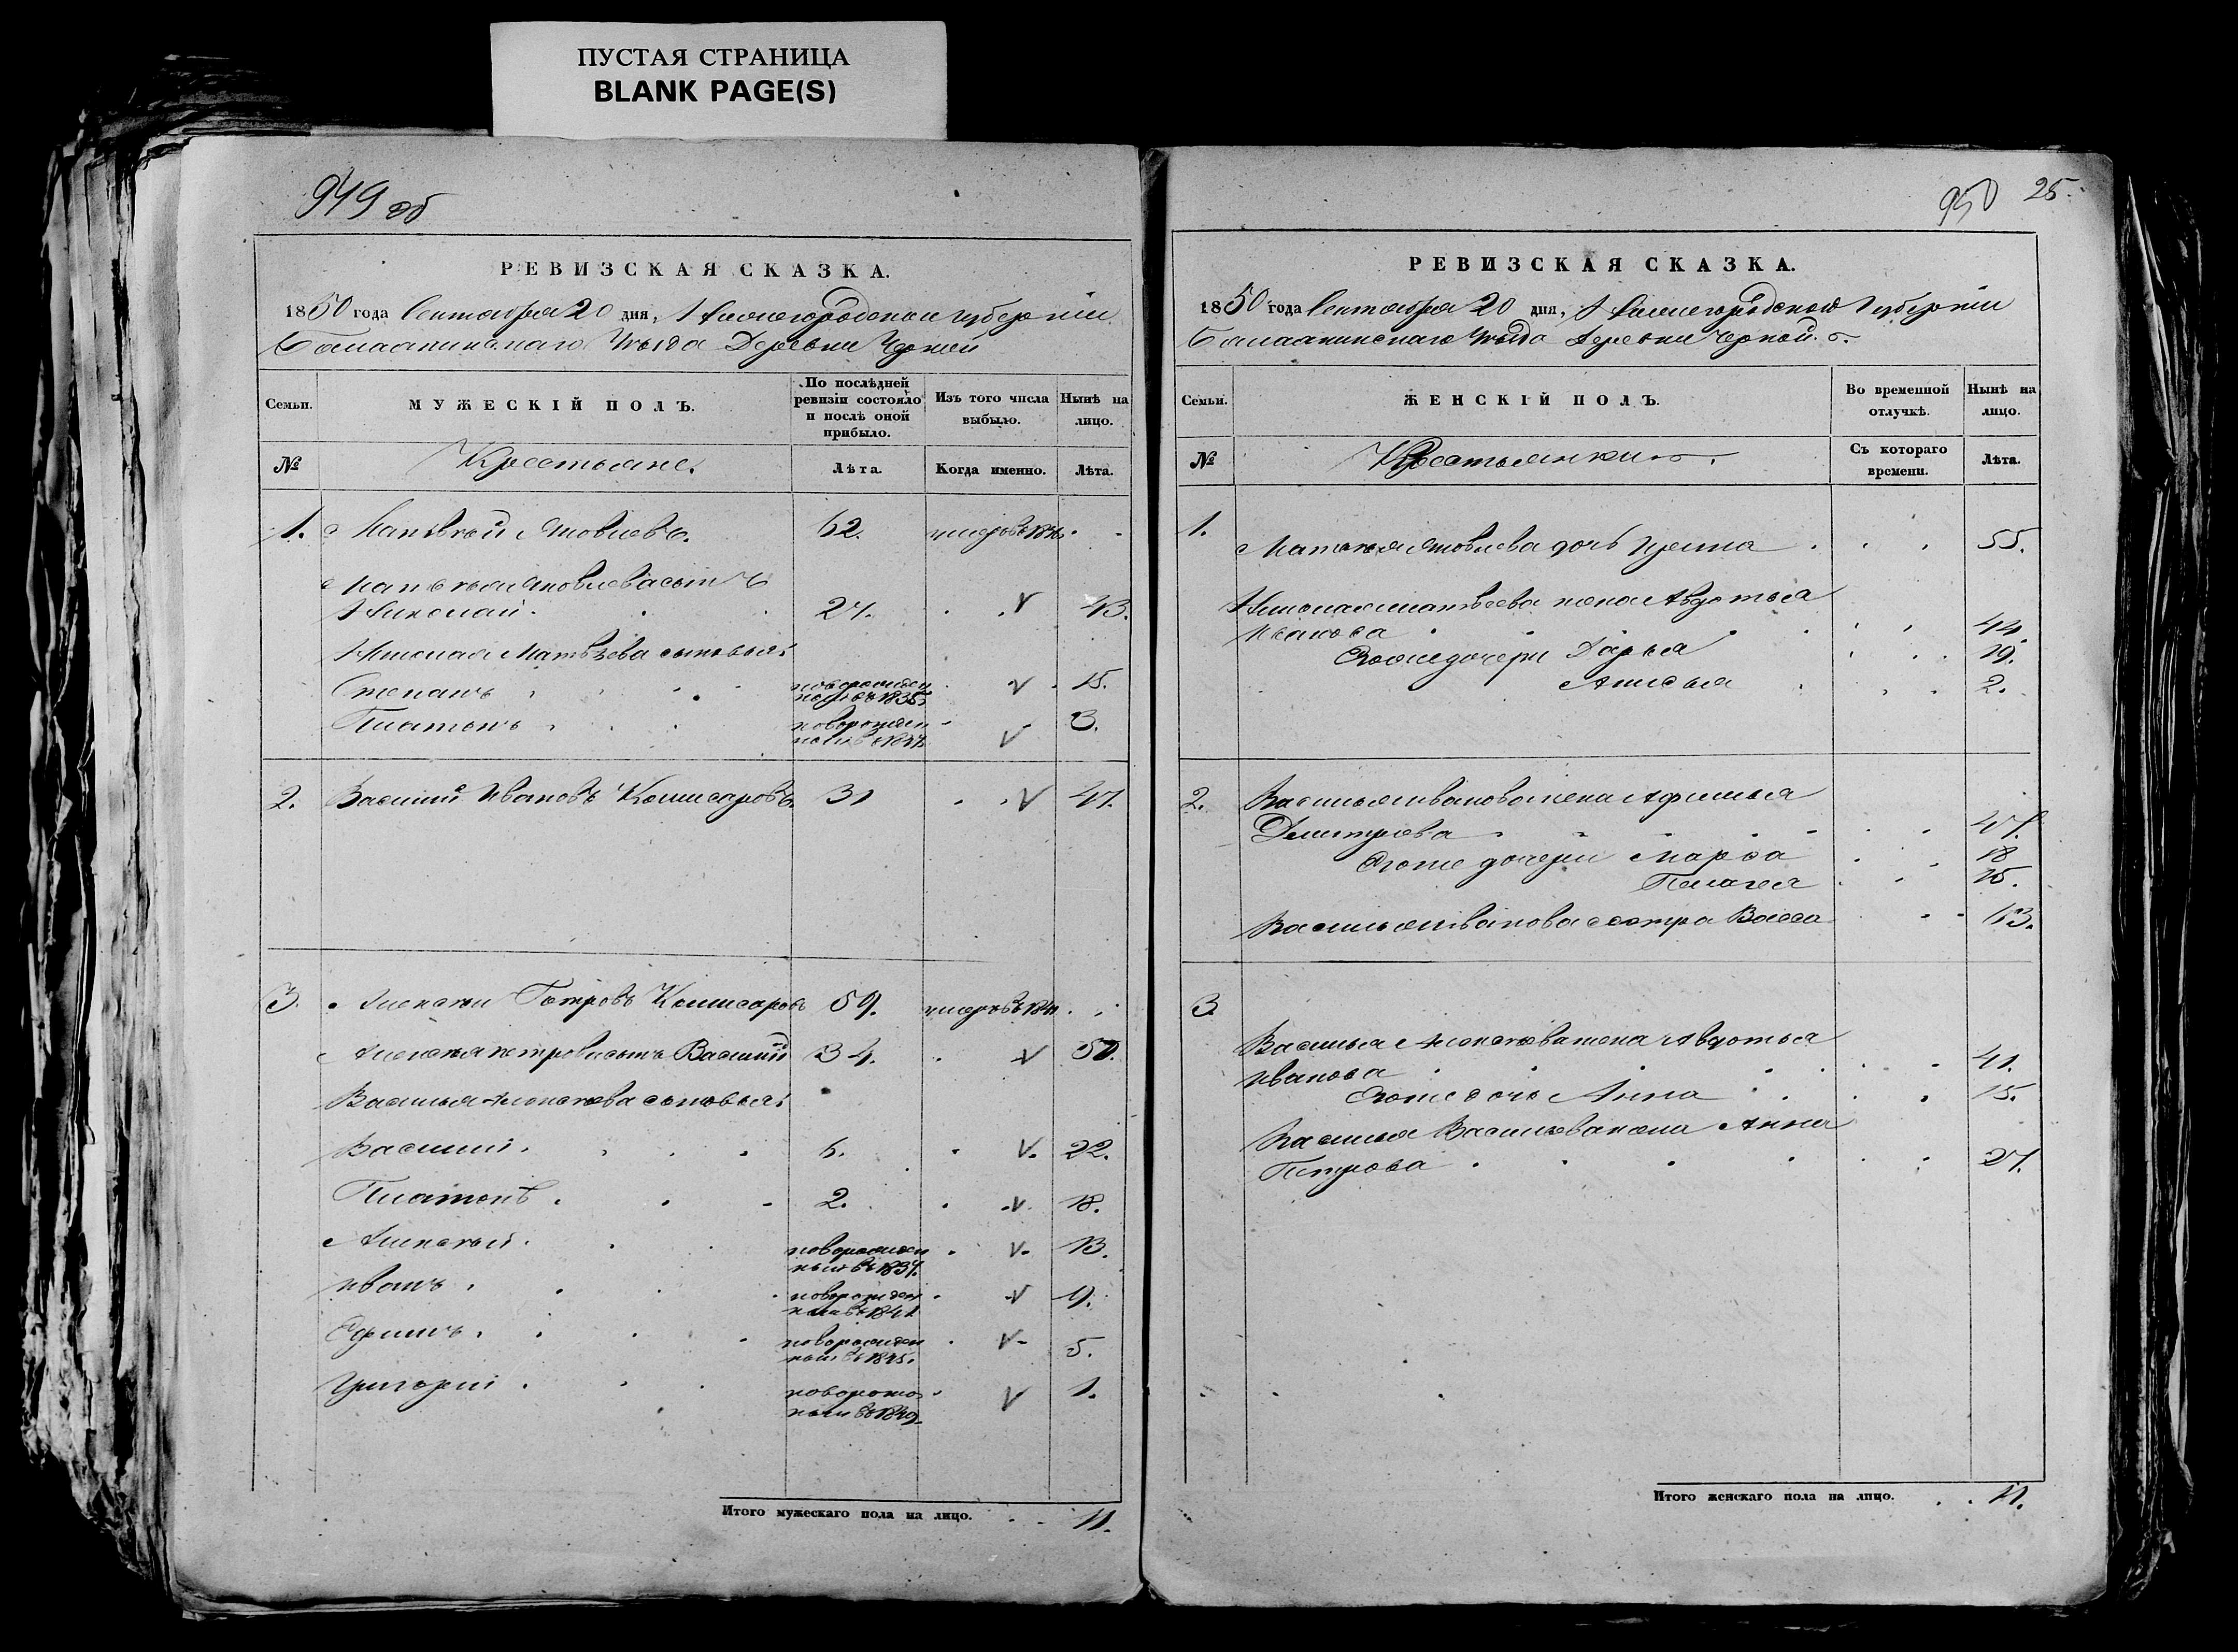 ПУСТАЯ СТРАНИЦА
BLANK PAGE(S)
949 об
РЕВИЗСКАЯ СКАЗКА.
1850 года Сентября 20 дня, Нижегородской губернiи
Балахнинскаго Уѣзда Деревни Черной
Семьи.
МУЖЕСКІЙ ПОЛЪ.
По послѣдней ревизіи состояло и послѣ оной прибыло.
Изъ того числа выбыло.
Нынѣ на лицо.
№
Крестьяне.
Лѣта.
Когда именно.
Лѣта.
1. Матвѣй Яковлевъ. 62. умеръ въ
Матвѣя Яковлева сынъ
Николай. 27. 43.
Николая Матвѣева сыновья:
Степанъ новорожден 15.
ный въ 1835
Платонъ новорожден 3.
ный въ 1847
2. Василий Ивановъ Комисаровъ. 31 47.
3. Алексѣй Петровъ Комисаровъ 59. умеръ въ
Алексѣя Петрова сынъ Василий 34. 50.
Василья Алексѣева сыновья:
Василий. 6. 22.
Платонъ. 2. 18.
Алексѣй. новорожден 13.
ный въ 1837.
Иванъ. новорожден 9.
ный въ 1841
Ефимъ. новорожден 5.
ный въ 1845.
Григорий. новорож 1.
ный въ 1849.
Итого мужескаго пола на лицо. 11.
950 25.
РЕВИЗСКАЯ СКАЗКА.
1850 года Сентября 20 дня, Нижегородской Губернiи
Балахнинскаго Уѣзда Деревни Черной.
Семьи.
ЖЕНСКІЙ ПОЛЪ.
Во временной отлучкѣ.
Нынѣ на лицо.
№
Крестьянки.
Съ котораго времени.
Лѣта.
1.
Матвѣя Яковлева дочь 55.
Николая Матвѣева жена Авдотья
Иванова 44.
Его же дочери Дарья 19.
Анисья 2.
2. Василья Иванова жена Афимья
Дмитрева 47.
Его же дочери Марфа 18
Пелагея 15.
Василья Иванова сестра Васса 43.
3.
Василья Алексѣева жена Авдотья
Иванова 41.
Его же дочь Анна 15.
Василья Васильева жена Анна
Петрова 27.
Итого женскаго пола на лицо. 11.